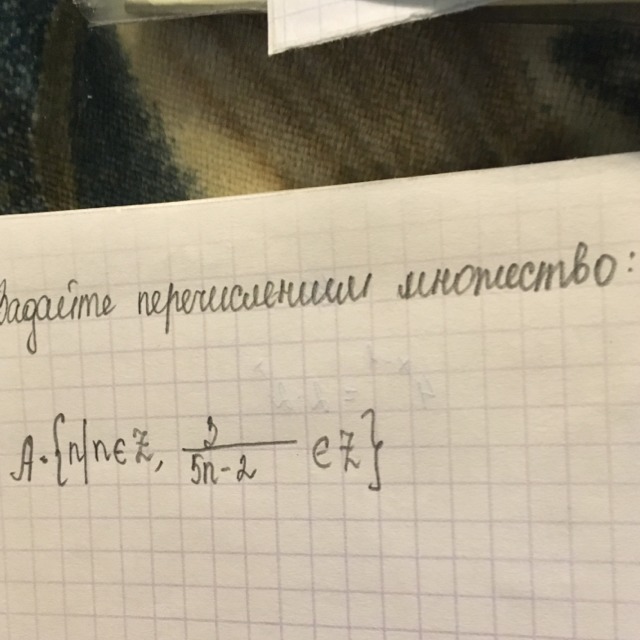 Задайте перечислением множество:
A = {n | n ∈ Z, 3/(5n-2) ∈ Z}